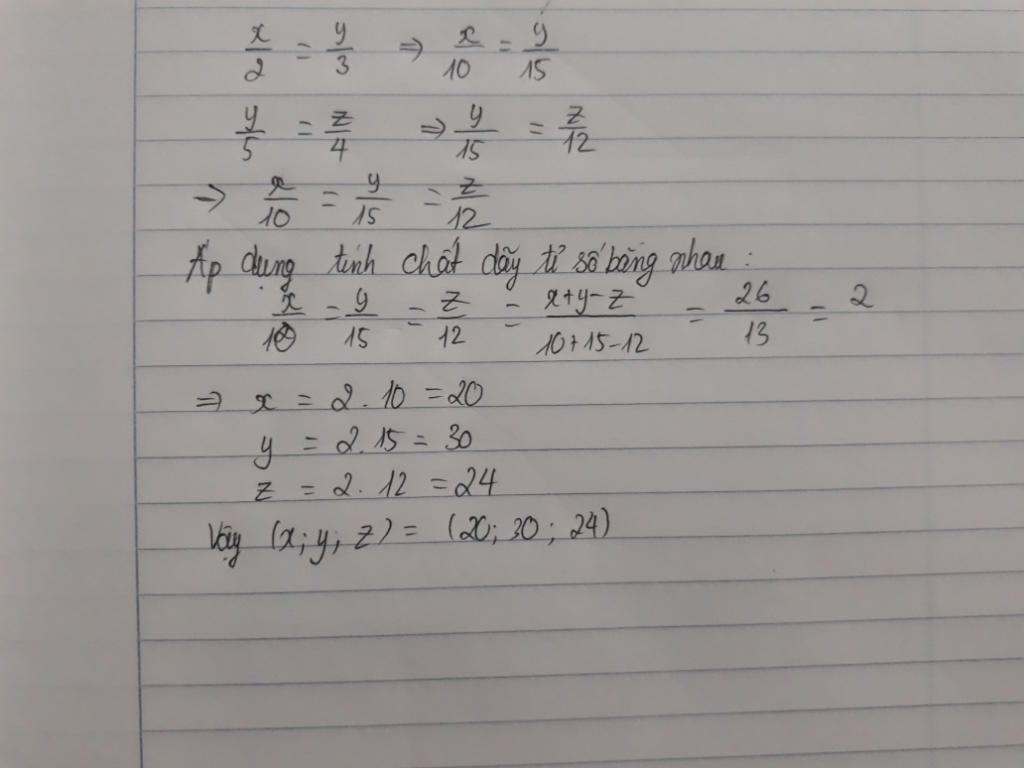 x/2 = y/3 ⇒ x/10 = y/15
y/5 = z/4 ⇒ y/15 = z/12
→ x/10 = y/15 = z/12
Áp dụng tính chất dãy tỉ số bằng nhau :
x/10 = y/15 = z/12 = x+y-z/10+15-12 = 26/13 = 2
⇒ x = 2 . 10 = 20
y = 2.15 = 30
z = 2. 12 = 24
Vậy (x; y; z) = (20; 30 ; 24)